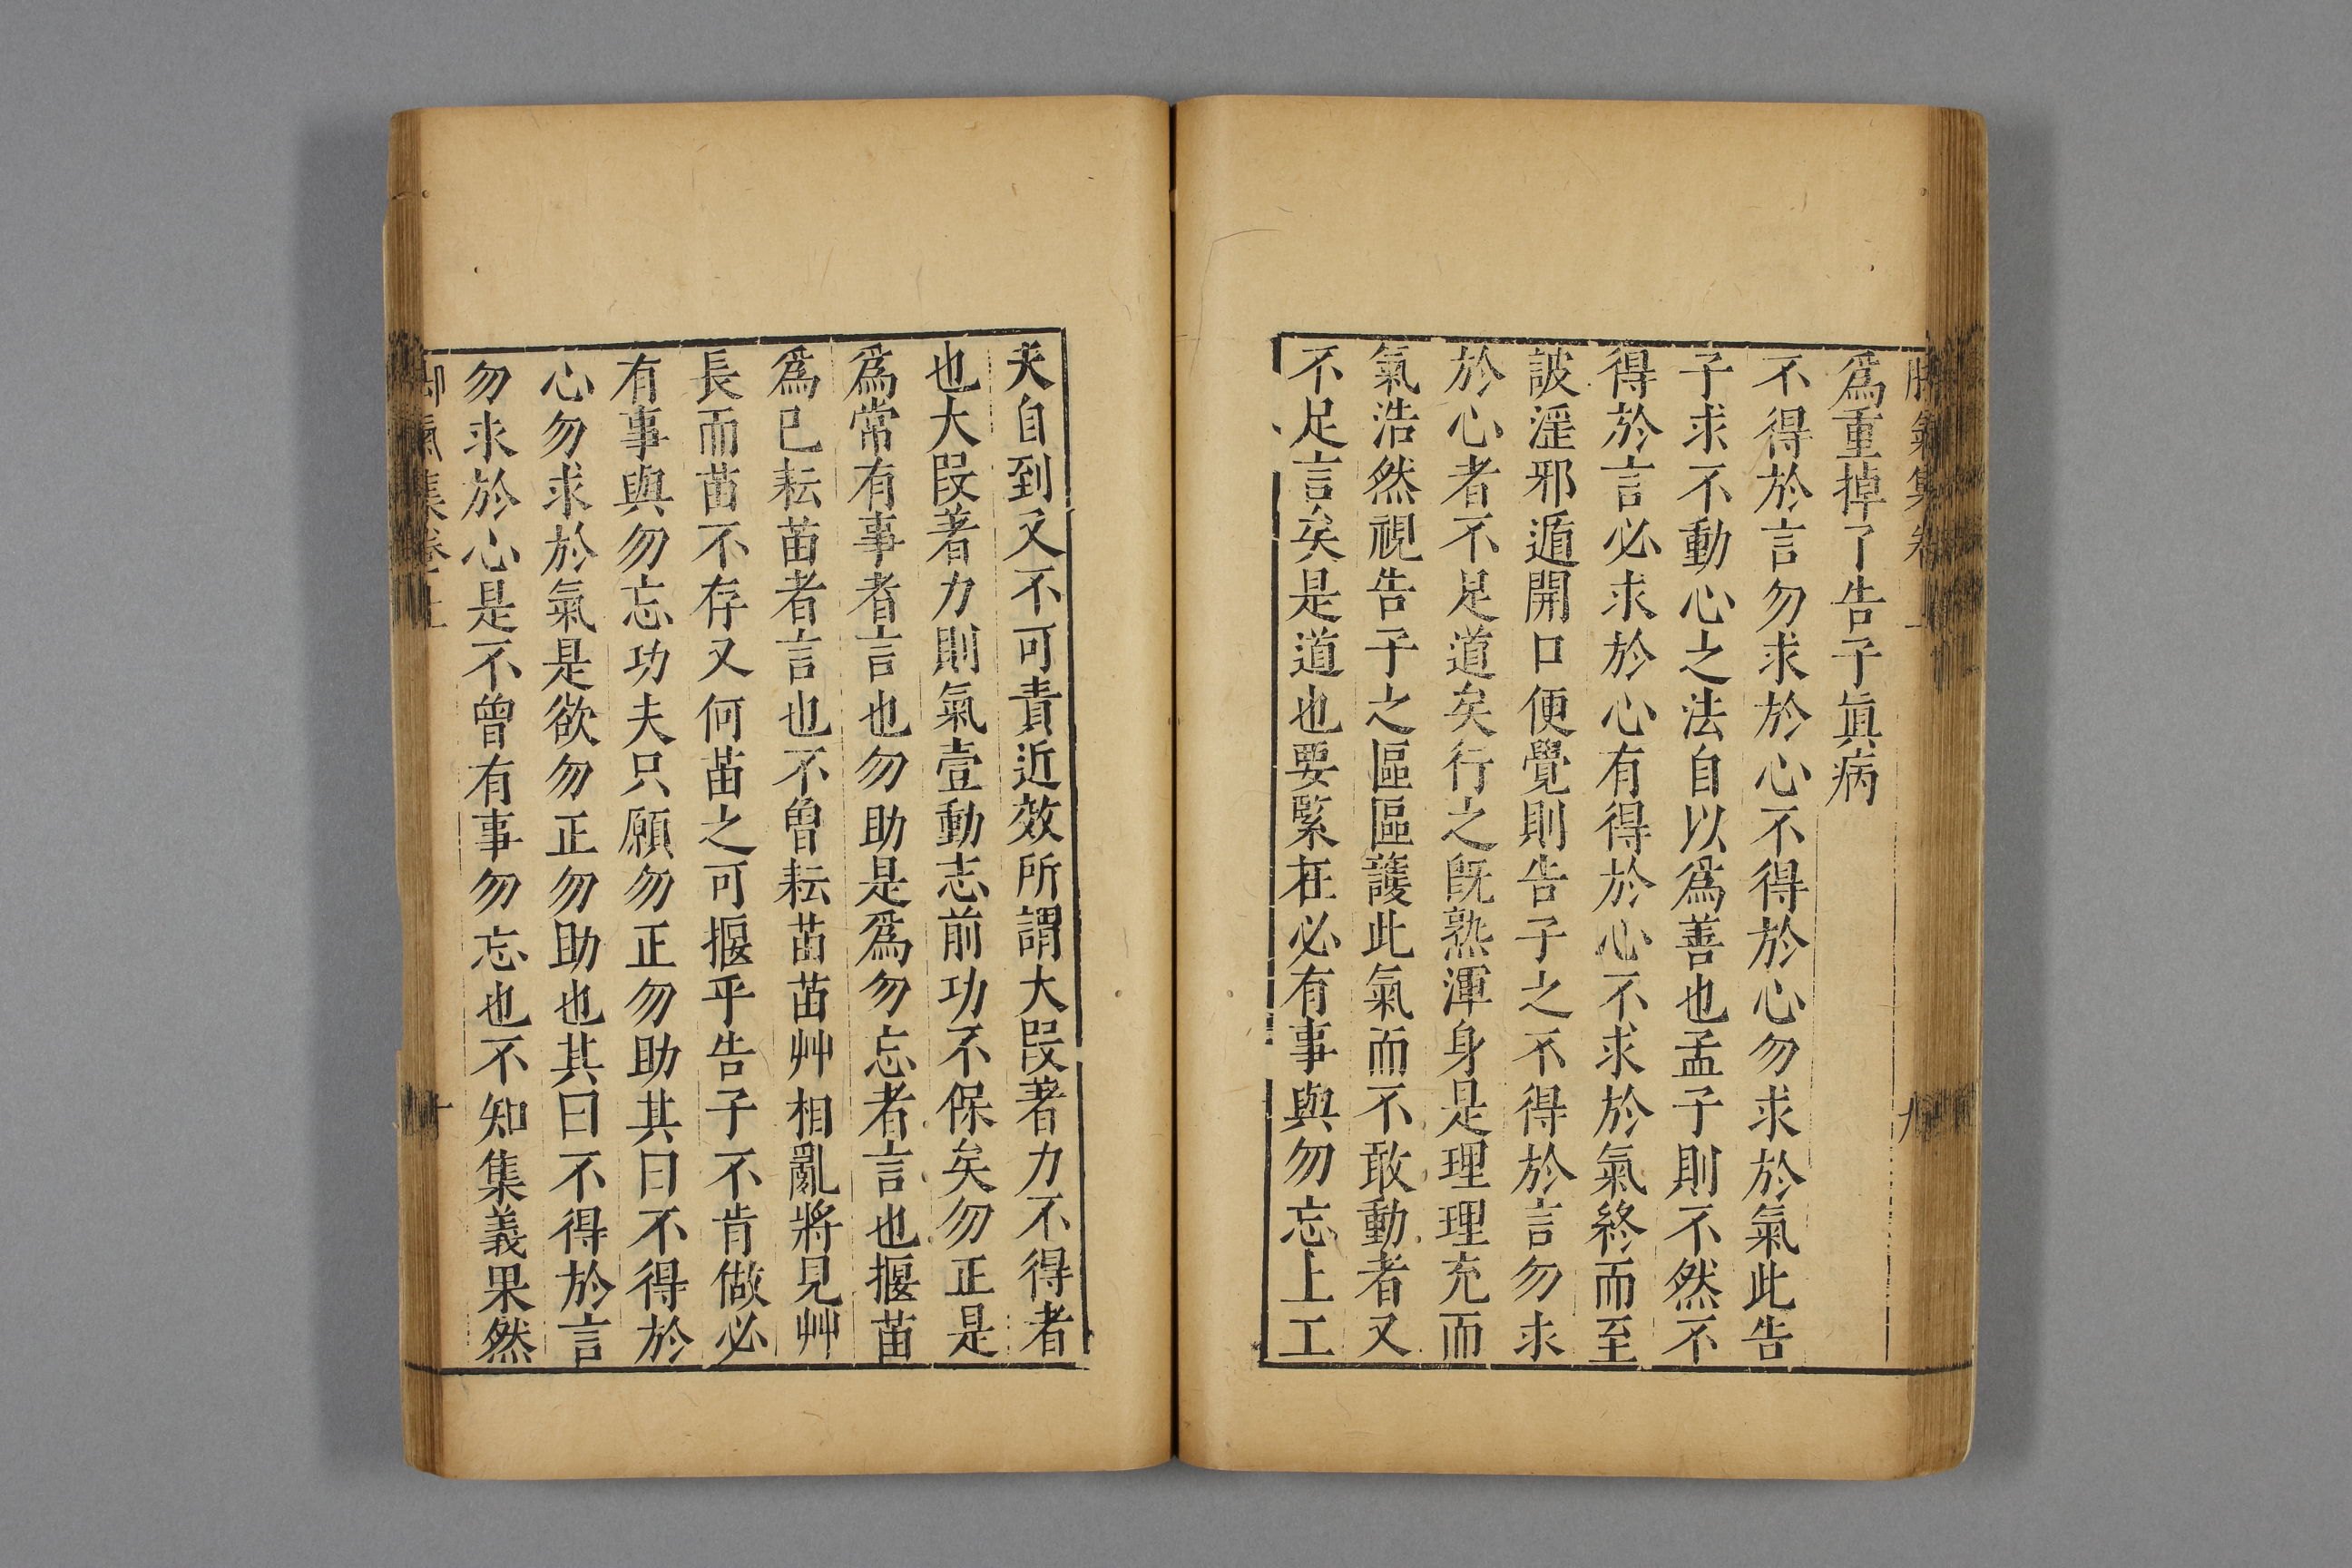 爲重掉了告子眞病
不得於言勿求於心不得於心勿求於氣此告
子求不動心之法自以爲善也孟子則不然不
得於言必求於心有得於心不求於氣終而至
詖淫邪遁開口便覺則告子之不得於言勿求
於心者不足道矣行之旣熟渾身是理理充而
氣浩然視告子之區區護此氣而不敢動者又
不足言矣是道也要緊在必有事與勿忘上工
夫自到又不可責近效所謂大段著力不得者
也大段著力則氣壹動志前功不保矣勿正是
爲常有事者言也勿助是爲勿忘者言也揠苗
爲已耘苗者言也不曾耘苗苗艸相亂將見艸
長而苗不存又何苗之可揠乎告子不肯做必
有事與勿忘功夫只願勿正勿助其曰不得於
心勿求於氣是欲勿正勿助也其曰不得於言
勿求於心是不曾有事勿忘也不知集義果然
脚氣集卷上
十